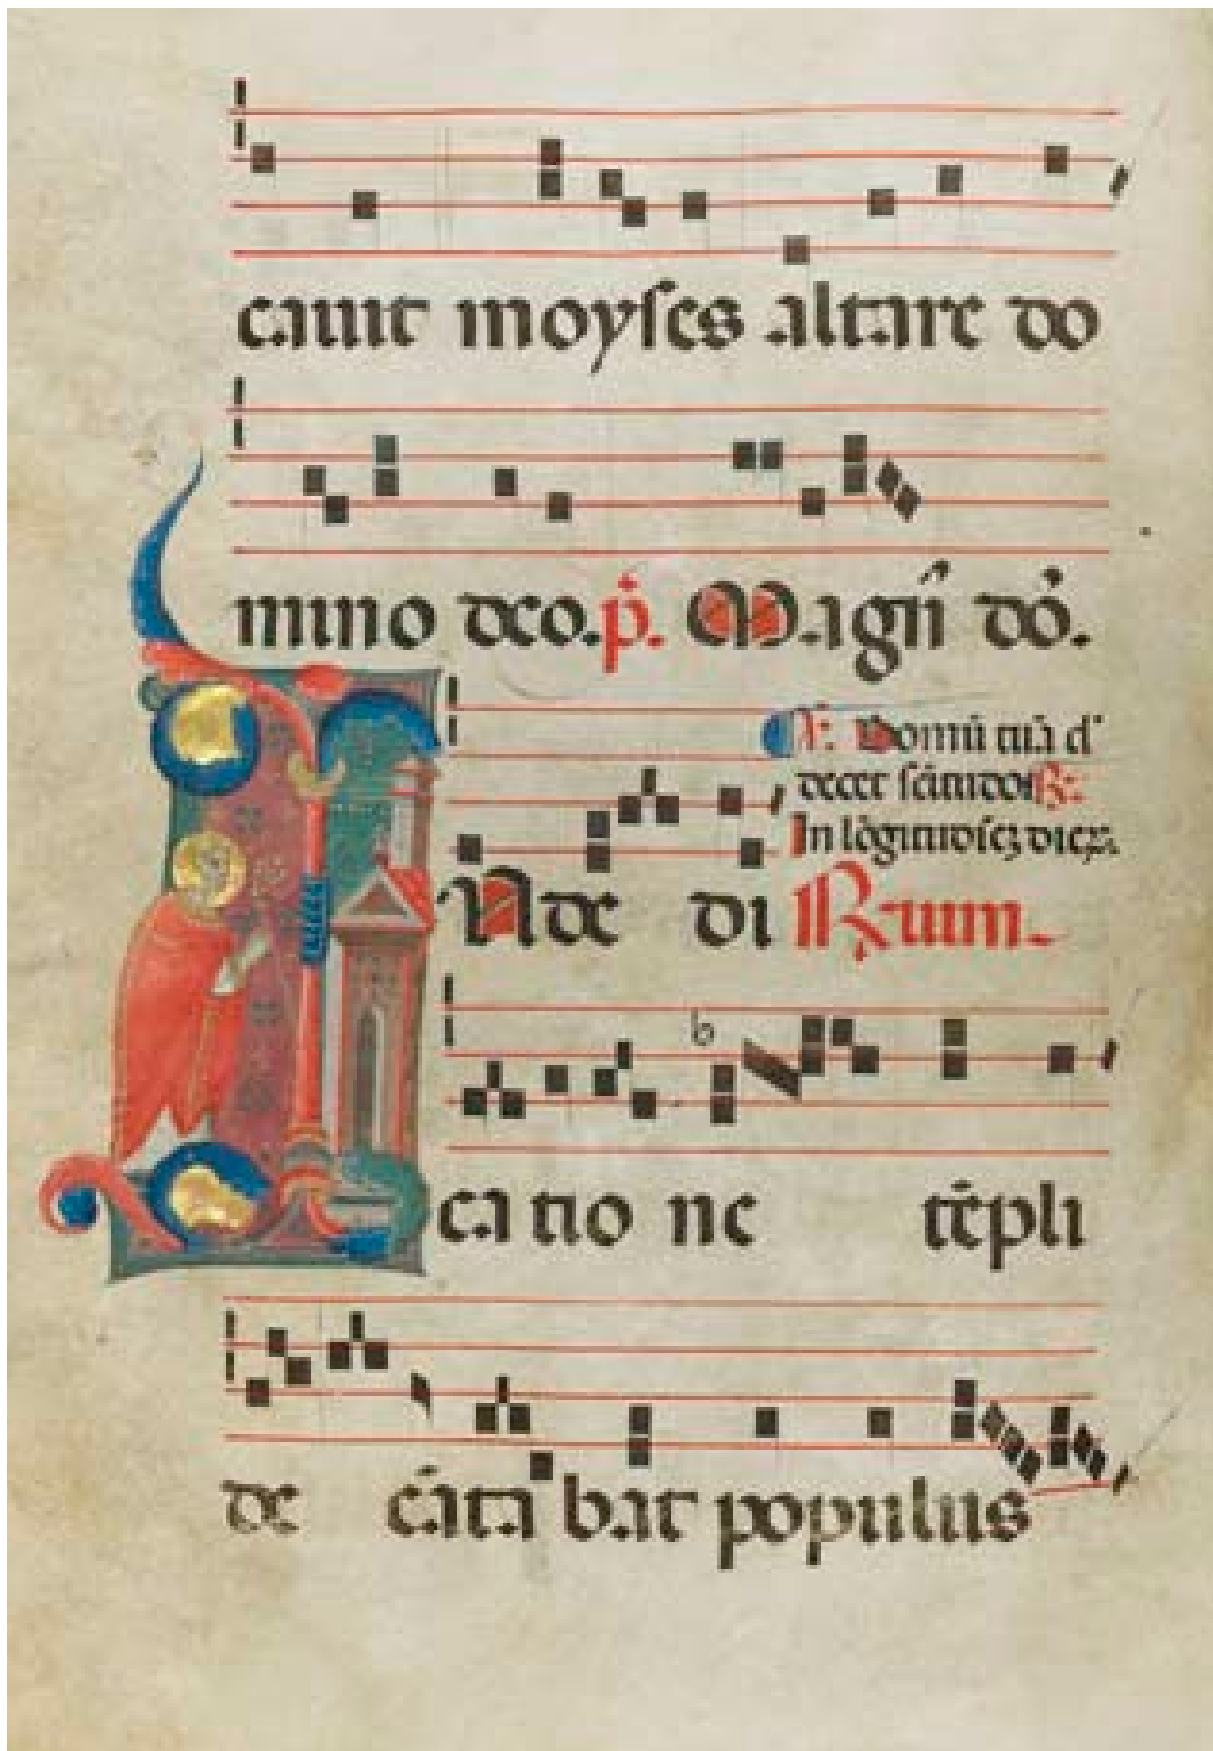 cauit moyses altare do
mino deo. p̄. Magn̄ dō.
℣. Domū tuā d̄
decet sc̄itudo ℟.
In lōgitudīeȝ dieꝝ.
IN de di ℟uum.
ca tio ne tēpli
de cāta bat populus